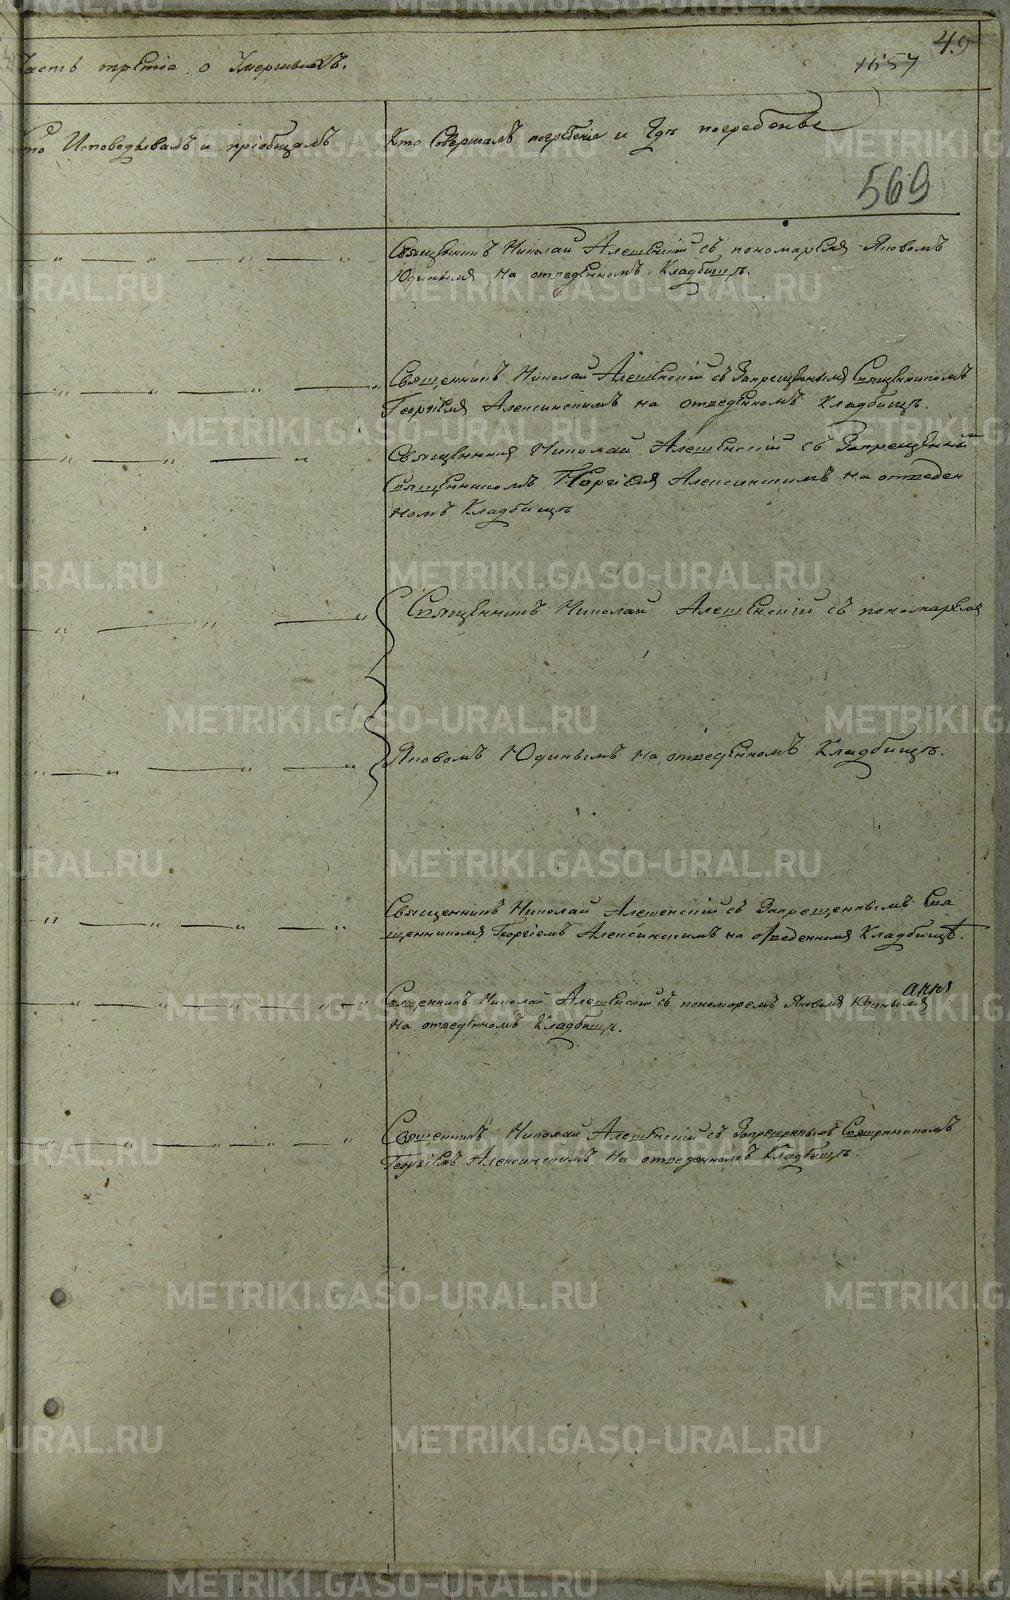 49
1657
Часть третіа о Умершихъ.
Кто Исповедывалъ и пріобщалъ
Кто Совершалъ погребеніе и Гдѣ погребены
569
Священникъ Николай Алешенскій съ пономаремъ Яковомъ
Юдинымъ на отведенномъ Кладбищѣ.
Священникъ Николай Алешенскій съ Запрещеннымъ Священникомъ
Георгіемъ Алексинскимъ на отведенномъ Кладбищѣ.
Священникъ Николай Алешенскій съ Запрещеннымъ
Священникомъ Георгіемъ Алексинскимъ на отведен
номъ Кладбищѣ
Священникъ Николай Алешенскій съ пономаремъ
Яковомъ Юдинымъ на отведенномъ Кладбищѣ.
Священникъ Николай Алешенскій съ Запрещеннымъ Свя
щенникомъ Георгіемъ Алексинскимъ на отведенномъ Кладбищѣ.
Священникъ Николай Алешенскій съ пономаремъ Яковомъ Юдинымъ
на отведенномъ Кладбищѣ.
Священникъ Николай Алешенскій съ Запрещеннымъ Священникомъ
Георгіемъ Алексинскимъ на отведенномъ Кладбищѣ.
METRIKI.GASO-URAL.RU